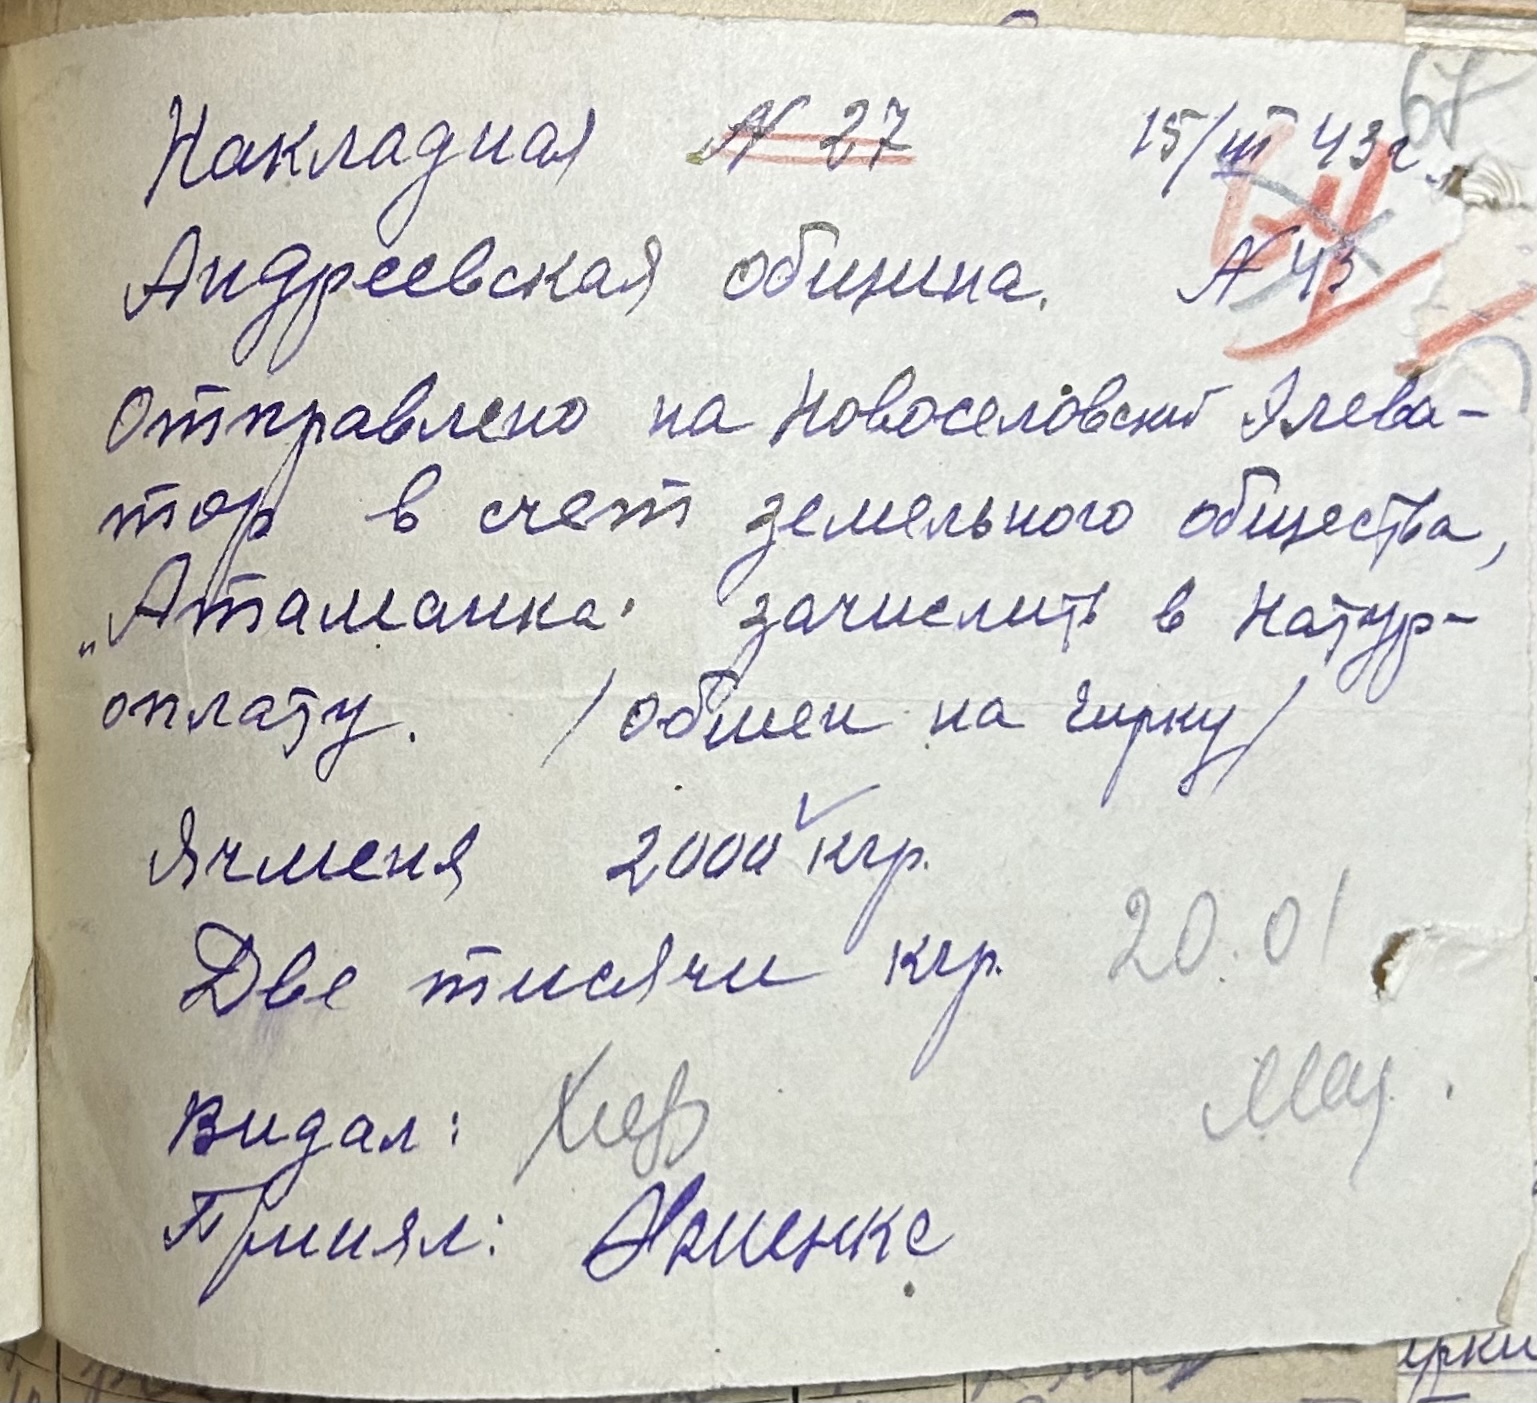 67
Накладная № 27 15/III 43 г.
Андреевская община. № 43
Отправлено на Новоселовский Элева-
тор в счет земельного общества,
„Атаманка" зачислить в Натур-
оплату. / обмен на Гирку /
Ячменя 2000 кгр.
Две тисячи кгр. 20.01
Видал:
Принял:
ирки